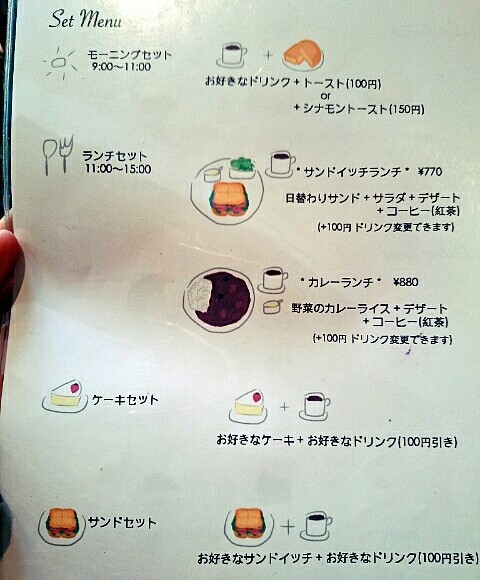 Set Menu
モーニングセット
9:00〜11:00
お好きなドリンク + トースト(100円)
or
+ シナモントースト(150円)
ランチセット
11:00〜15:00
* サンドイッチランチ * ¥770
日替わりサンド + サラダ + デザート
+ コーヒー(紅茶)
(+100円 ドリンク変更できます)
* カレーランチ * ¥880
野菜のカレーライス + デザート
+ コーヒー(紅茶)
(+100円 ドリンク変更できます)
ケーキセット
お好きなケーキ + お好きなドリンク(100円引き)
サンドセット
お好きなサンドイッチ + お好きなドリンク(100円引き)